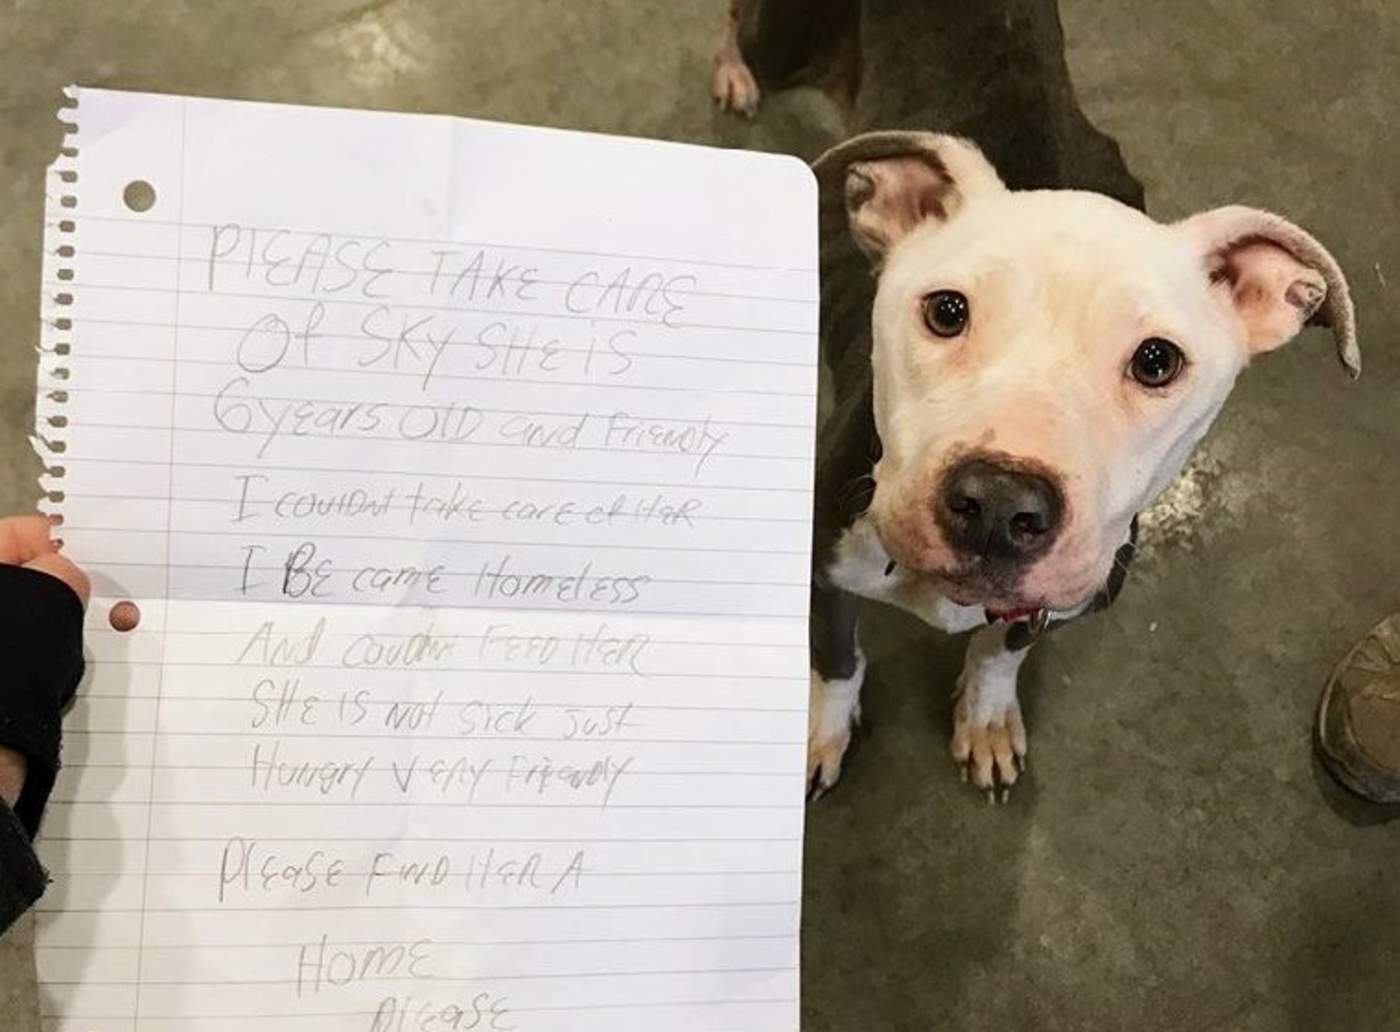 PlEASE TAKE CARE
Of SKY SHE iS
6 yEars OlD and friENDly
I couldnt take care of HER
I BE came HomElESS
And coudnt FEED HER
SHE IS Not sick just
Hungry VERY FriEndly
PlEasE FIND HER A
HomE
PlEasE